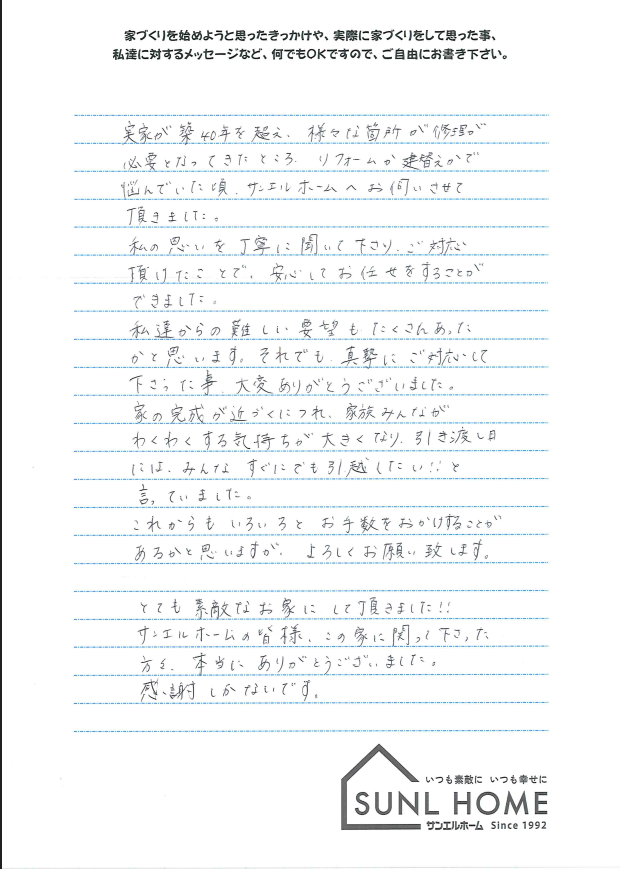 家づくりを始めようと思ったきっかけや、実際に家づくりをして思った事、
私達に対するメッセージなど、何でもOKですので、ご自由にお書き下さい。
実家が築40年を超え、様々な箇所が修理が
必要となってきたところ、リフォームか建替えかで
悩んでいた頃、サンエルホームへお伺いさせて
頂きました。
私の思いを丁寧に聞いて下さり、ご対応
頂けたことで、安心してお任せをすることが
できました。
私達からの難しい要望もたくさんあった
かと思います。それでも、真摯にご対応して
下さった事、大変ありがとうございました。
家の完成が近づくにつれ、家族みんなが
わくわくする気持ちが大きくなり、引き渡し日
には、みんなすぐにでも引越したい!!と
言っていました。
これからもいろいろとお手数をおかけすることが
あるかと思いますが、よろしくお願い致します。
とても素敵なお家にして頂きました!!
サンエルホームの皆様、この家に関って下さった
方々、本当にありがとうございました。
感謝しかないです。
いつも素敵に いつも幸せに
SUNL HOME
サンエルホーム Since 1992